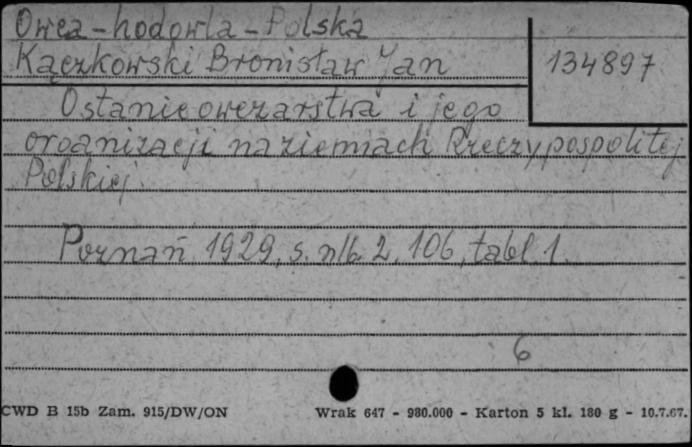 Owca - hodowla - Polska
Kączkowski Bronisław Jan
134897
O stanie owczarstwa i jego
organizacji na ziemiach Rzeczypospolitej
Polskiej.
Poznań 1929, s. nlb. 2, 106, tabl. 1.
6
CWD B 15b Zam. 915/DW/ON Wrak 647 - 980.000 - Karton 5 kl. 180 g - 10.7.67.